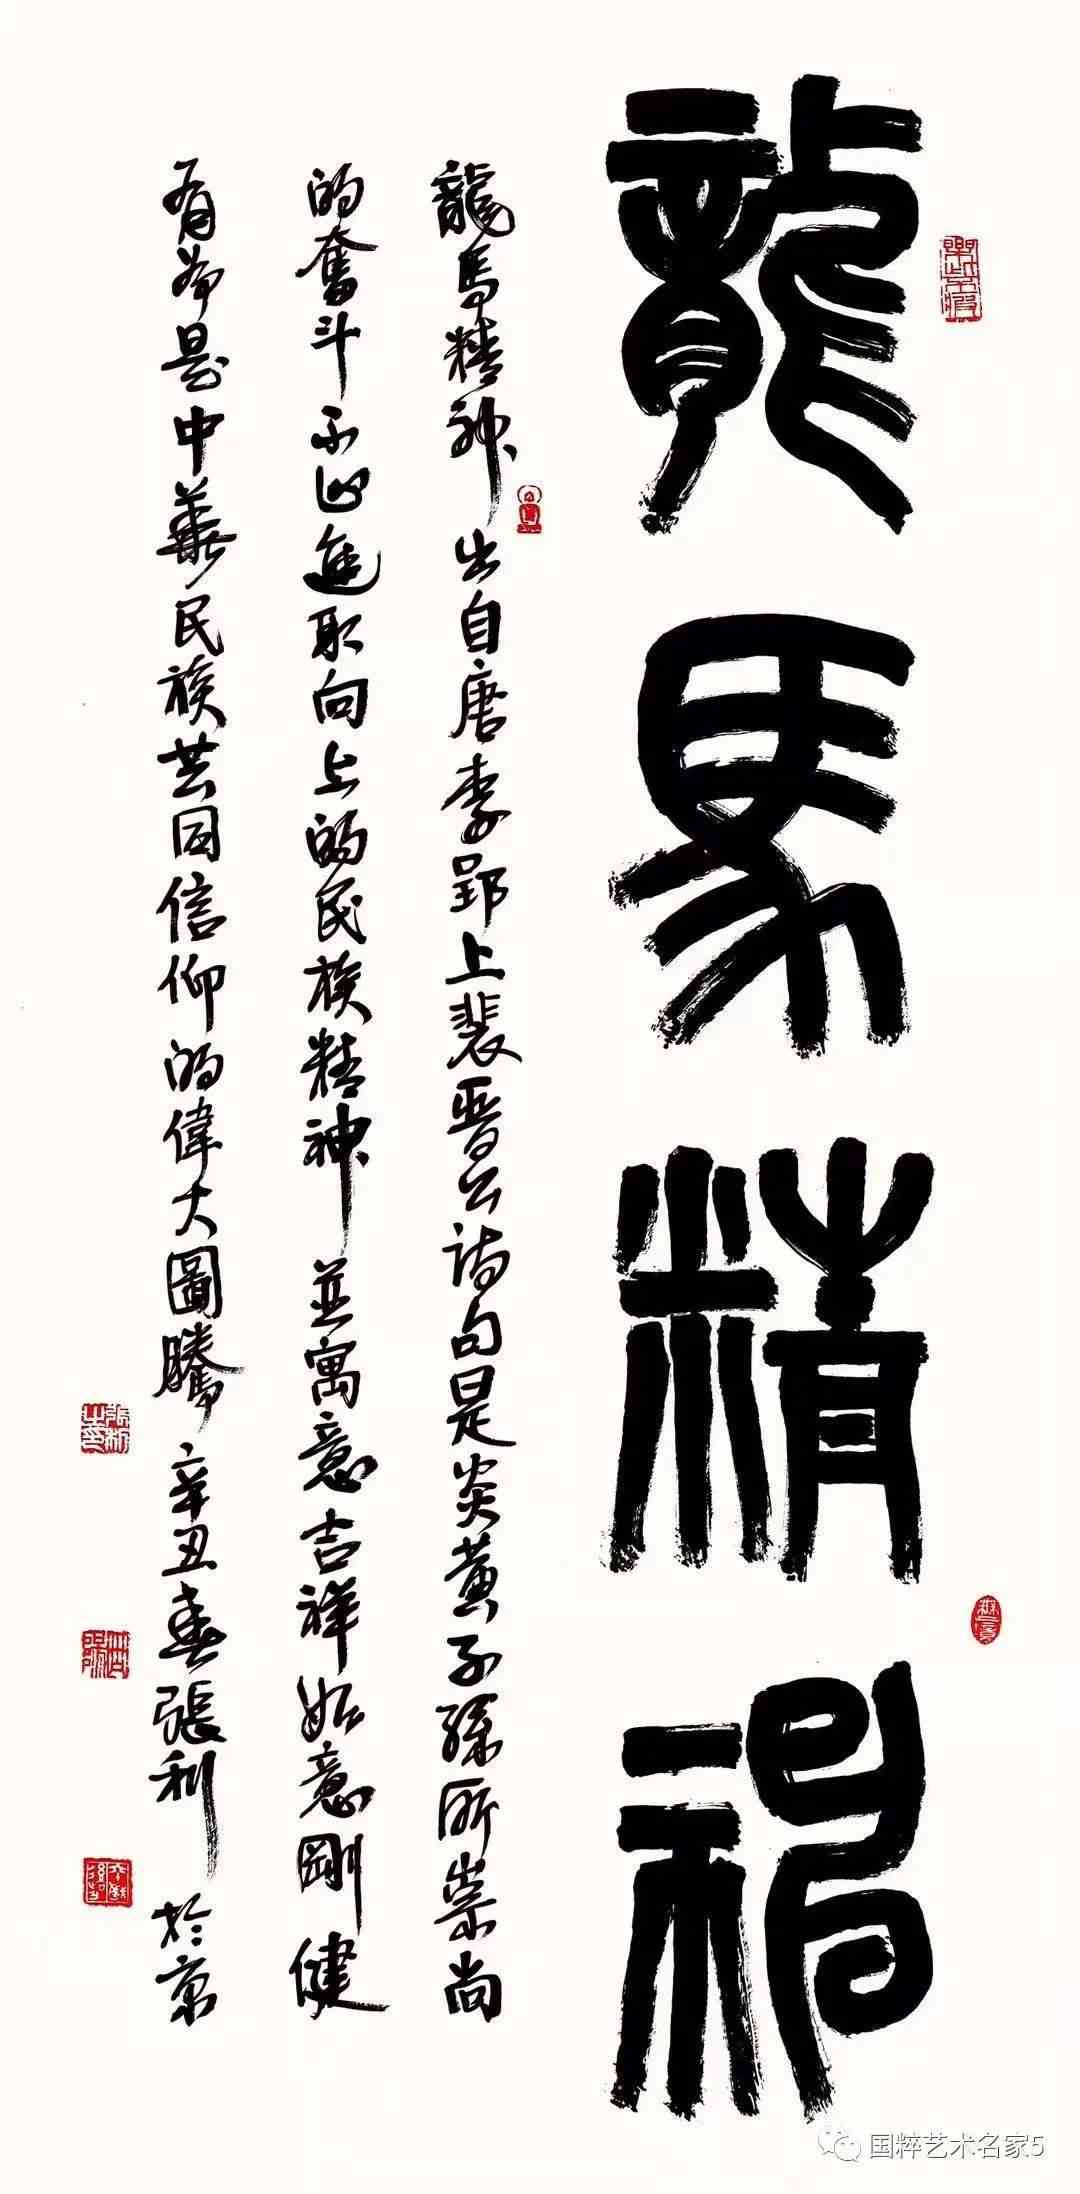 龍馬精神
龍馬精神 出自唐李郢上裴晋公詩句是炎黄子孫所崇尚
的奮斗不止進取向上的民族精神 並寓意吉祥如意剛健
有爲是中華民族共同信仰的偉大圖騰 辛丑春張利 於京
張利之印
国粹艺术名家5